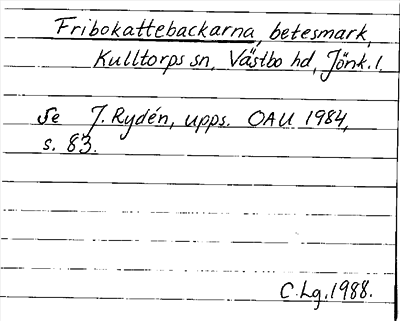 Fribokattebackarna, betesmark,
Kulltorps sn, Västbo hd, Jönk. l.
Se J. Rydén, upps. OAU 1984,
s. 83.
C. Lg. 1988.